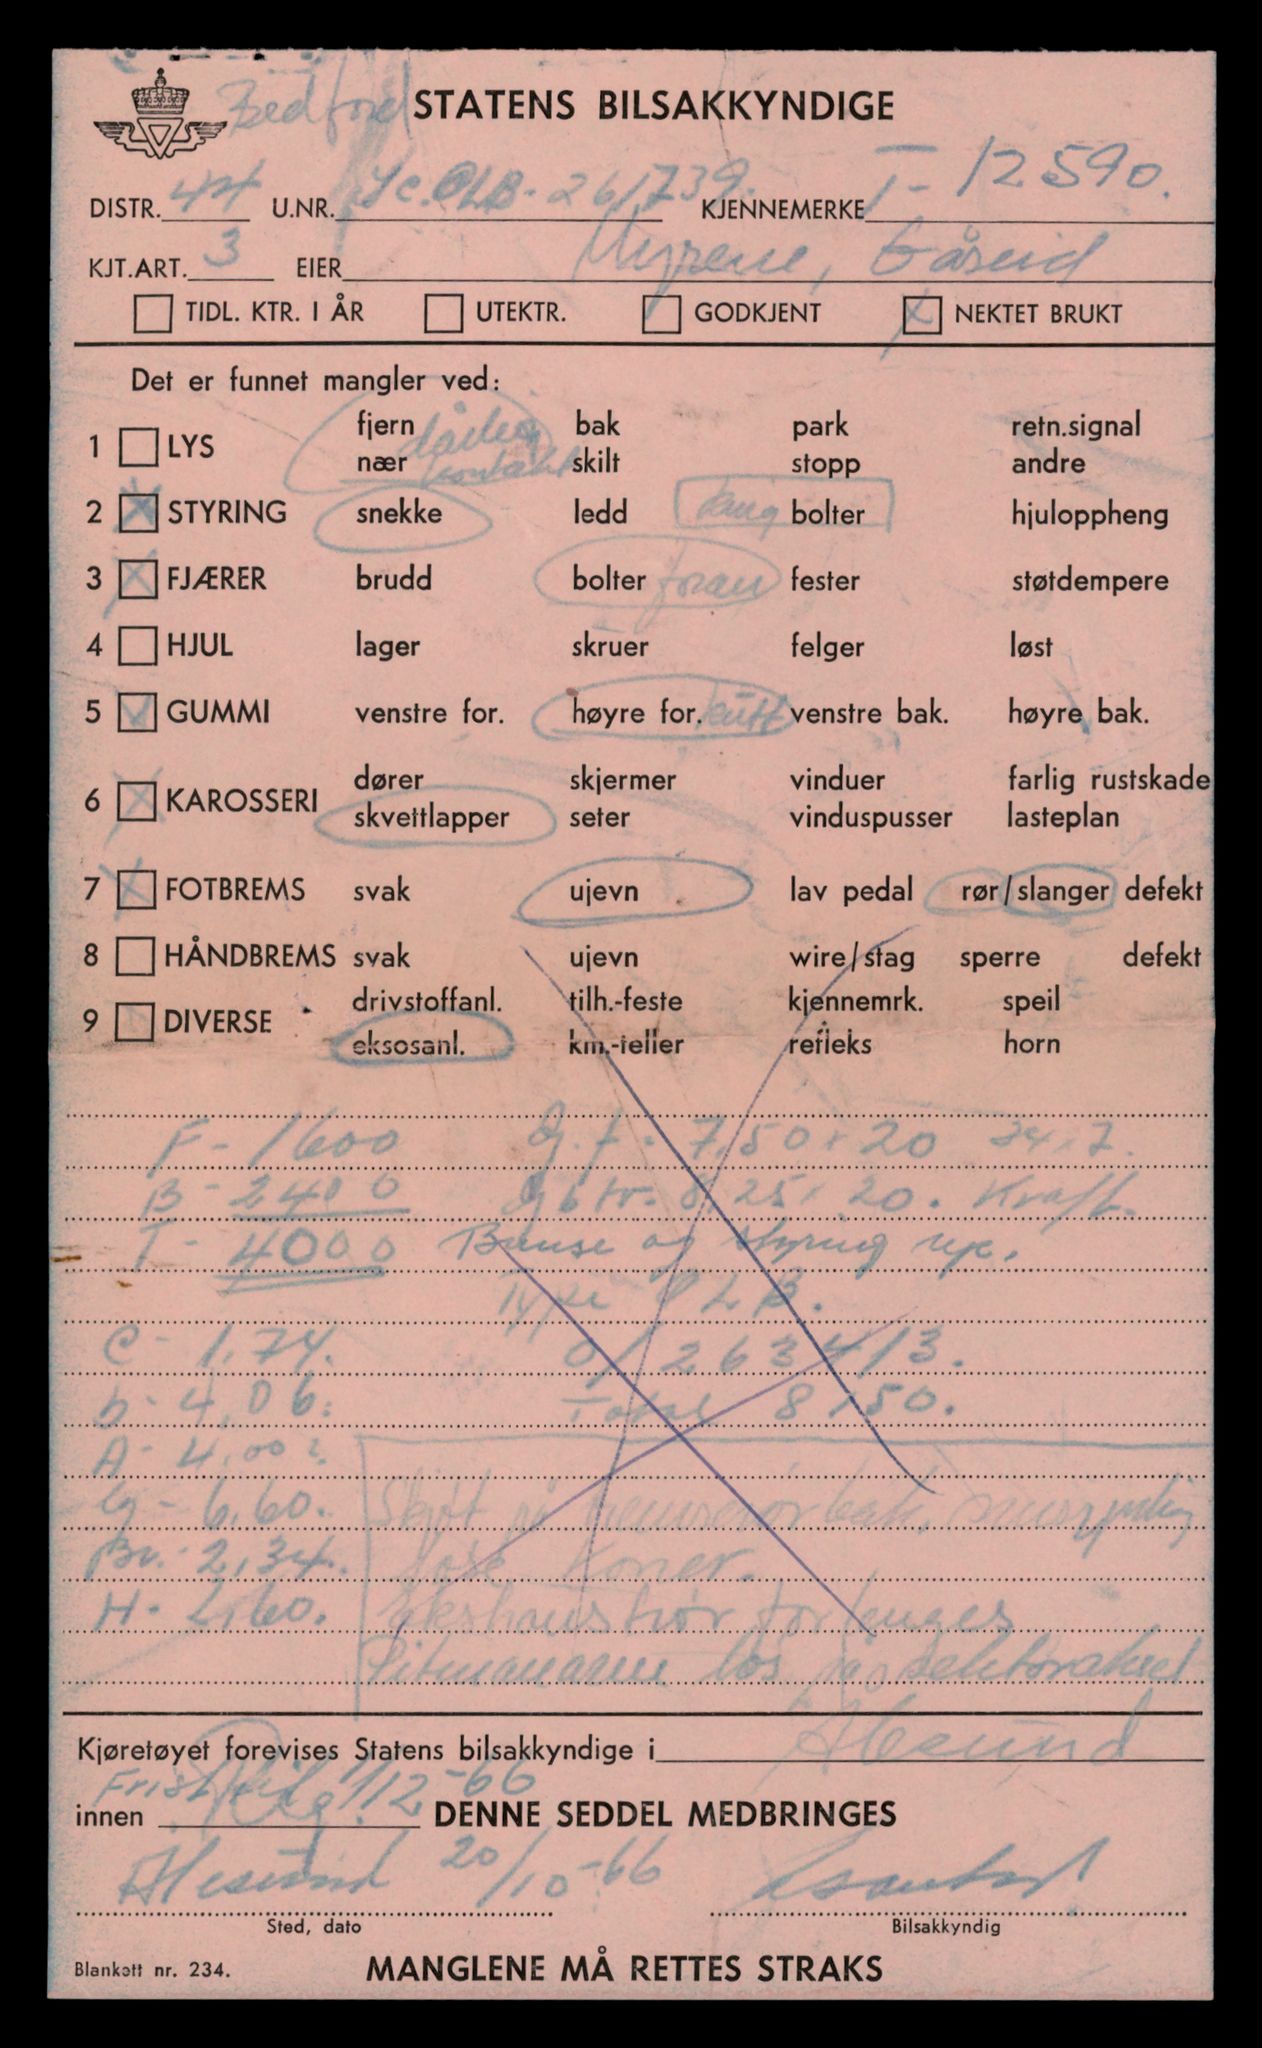 Bedford STATENS BILSAKKYNDIGE
DISTR. 44 U.NR. OLB-261739. KJENNEMERKE T-12590.
KJT.ART. 3 EIER Myrene, Gåseid
TIDL. KTR. I ÅR UTEKTR. GODKJENT X NEKTET BRUKT
Det er funnet mangler ved:
1 LYS fjern bak park retn.signal
nær dårlig kontakt skilt stopp andre
2 X STYRING snekke ledd bolter hjuloppheng
3 X FJÆRER brudd bolter foran fester støtdempere
4 HJUL lager skruer felger løst
5 GUMMI venstre for. høyre for. kutt venstre bak. høyre bak.
6 X KAROSSERI dører skjermer vinduer farlig rustskade
skvettlapper seter vinduspusser lasteplan
7 X FOTBREMS svak ujevn lav pedal rør/slanger defekt
8 HÅNDBREMS svak ujevn wire/stag sperre defekt
9 DIVERSE drivstoffanl. tilh.-feste kjennemrk. speil
eksosanl. km.-teller refleks horn
F - 1600 G.f - 7,50 x 20 34 x 7.
B - 2400 8,25 x 20. Kraft.
T - 4000 og styring
Type OLB.
C - 1,74. 263413.
b - 4,06. Total 8150.
A - 4,00?
G - 6,60. Skjøt på bremserør bak,
Br. - 2,34. løse
H - 1,60. Ekshaustrør forlenges
Pitmanarm løs på
Kjøretøyet forevises Statens bilsakkyndige i Ålesund
Frist til
innen 1/12-66 DENNE SEDDEL MEDBRINGES
Ålesund 20/10-66
Sted, dato Bilsakkyndig
Blankett nr. 234. MANGLENE MÅ RETTES STRAKS